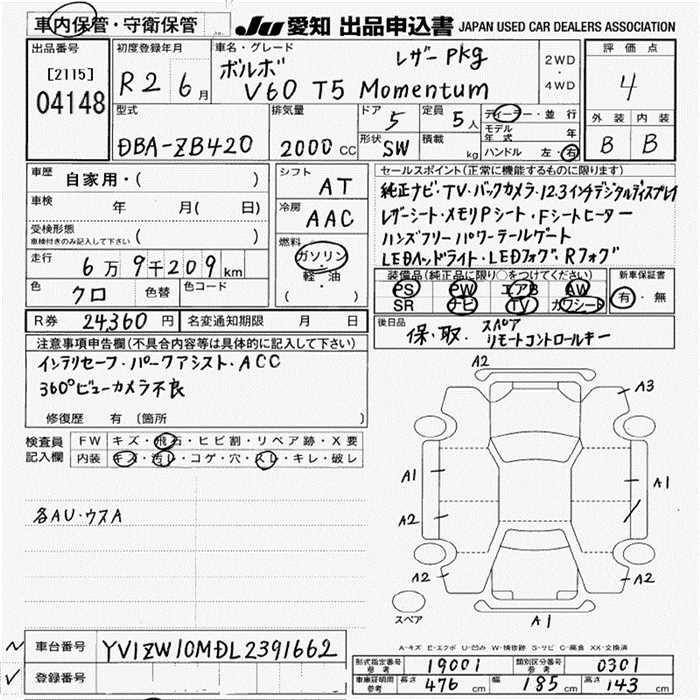 車内保管・守衛保管
JU 愛知 出品申込書 JAPAN USED CAR DEALERS ASSOCIATION
出品番号
[2115]
04148
初度登録年月
R2 6月
車名・グレード
レザーPkg
ボルボ
V60 T5 Momentum
2WD
・
4WD
評価点
4
外装 内装
B B
型式
DBA-ZB420
排気量
2000 CC
ドア
5
定員
5人
形状
SW
積載
kg
ディーラー・並行
モデル年式 年
ハンドル 左・右
車歴 自家用・( )
車検 年 月(日)
受検形態
車検付きのみ記入して下さい ( )
走行
6万9千209km
色
クロ
色替
色コード
シフト
AT
冷房
AAC
燃料
ガソリン
・
軽油
( )
セールスポイント(正常に機能するものに限ります)
純正ナビ・TV・バックカメラ・12.3インチデジタルディスプレイ
レザーシート・メモリPシート・Fシートヒーター
ハンズフリーパワーテールゲート
LEDヘッドライト・LEDフォグ・Rフォグ
装備品(純正品に限り○をつけてください)
PS PW エアB AW
SR ナビ TV カワシート
新車保証書
有・無
R券 24,360円
名変通知期限 月 日
後日品
保・取・スペア
リモートコントロールキー
注意事項申告欄(不具合内容等は具体的に記入して下さい)
インテリセーフ・パークアシスト・ACC
360°ビューカメラ不良
修復歴 有 〔箇所 〕
検査員
記入欄
FW キズ・飛石・ヒビ割・リペア跡・X要
内装 キズ・汚レ・コゲ・穴・スレ・キレ・破レ
各AU・ウスA
A2
A3
A1
A1
A2
A2
A2
A1
スペア
A-キズ E-エクボ U-凹み W-補修跡 S-サビ C-腐食 XX-交換済
車台番号 YV1ZW10MDL2391662
登録番号
型式指定番号
参考
19001
類別区分番号
参考
0301
車庫証明用
参考
長さ 476cm 幅 185cm 高さ 143cm